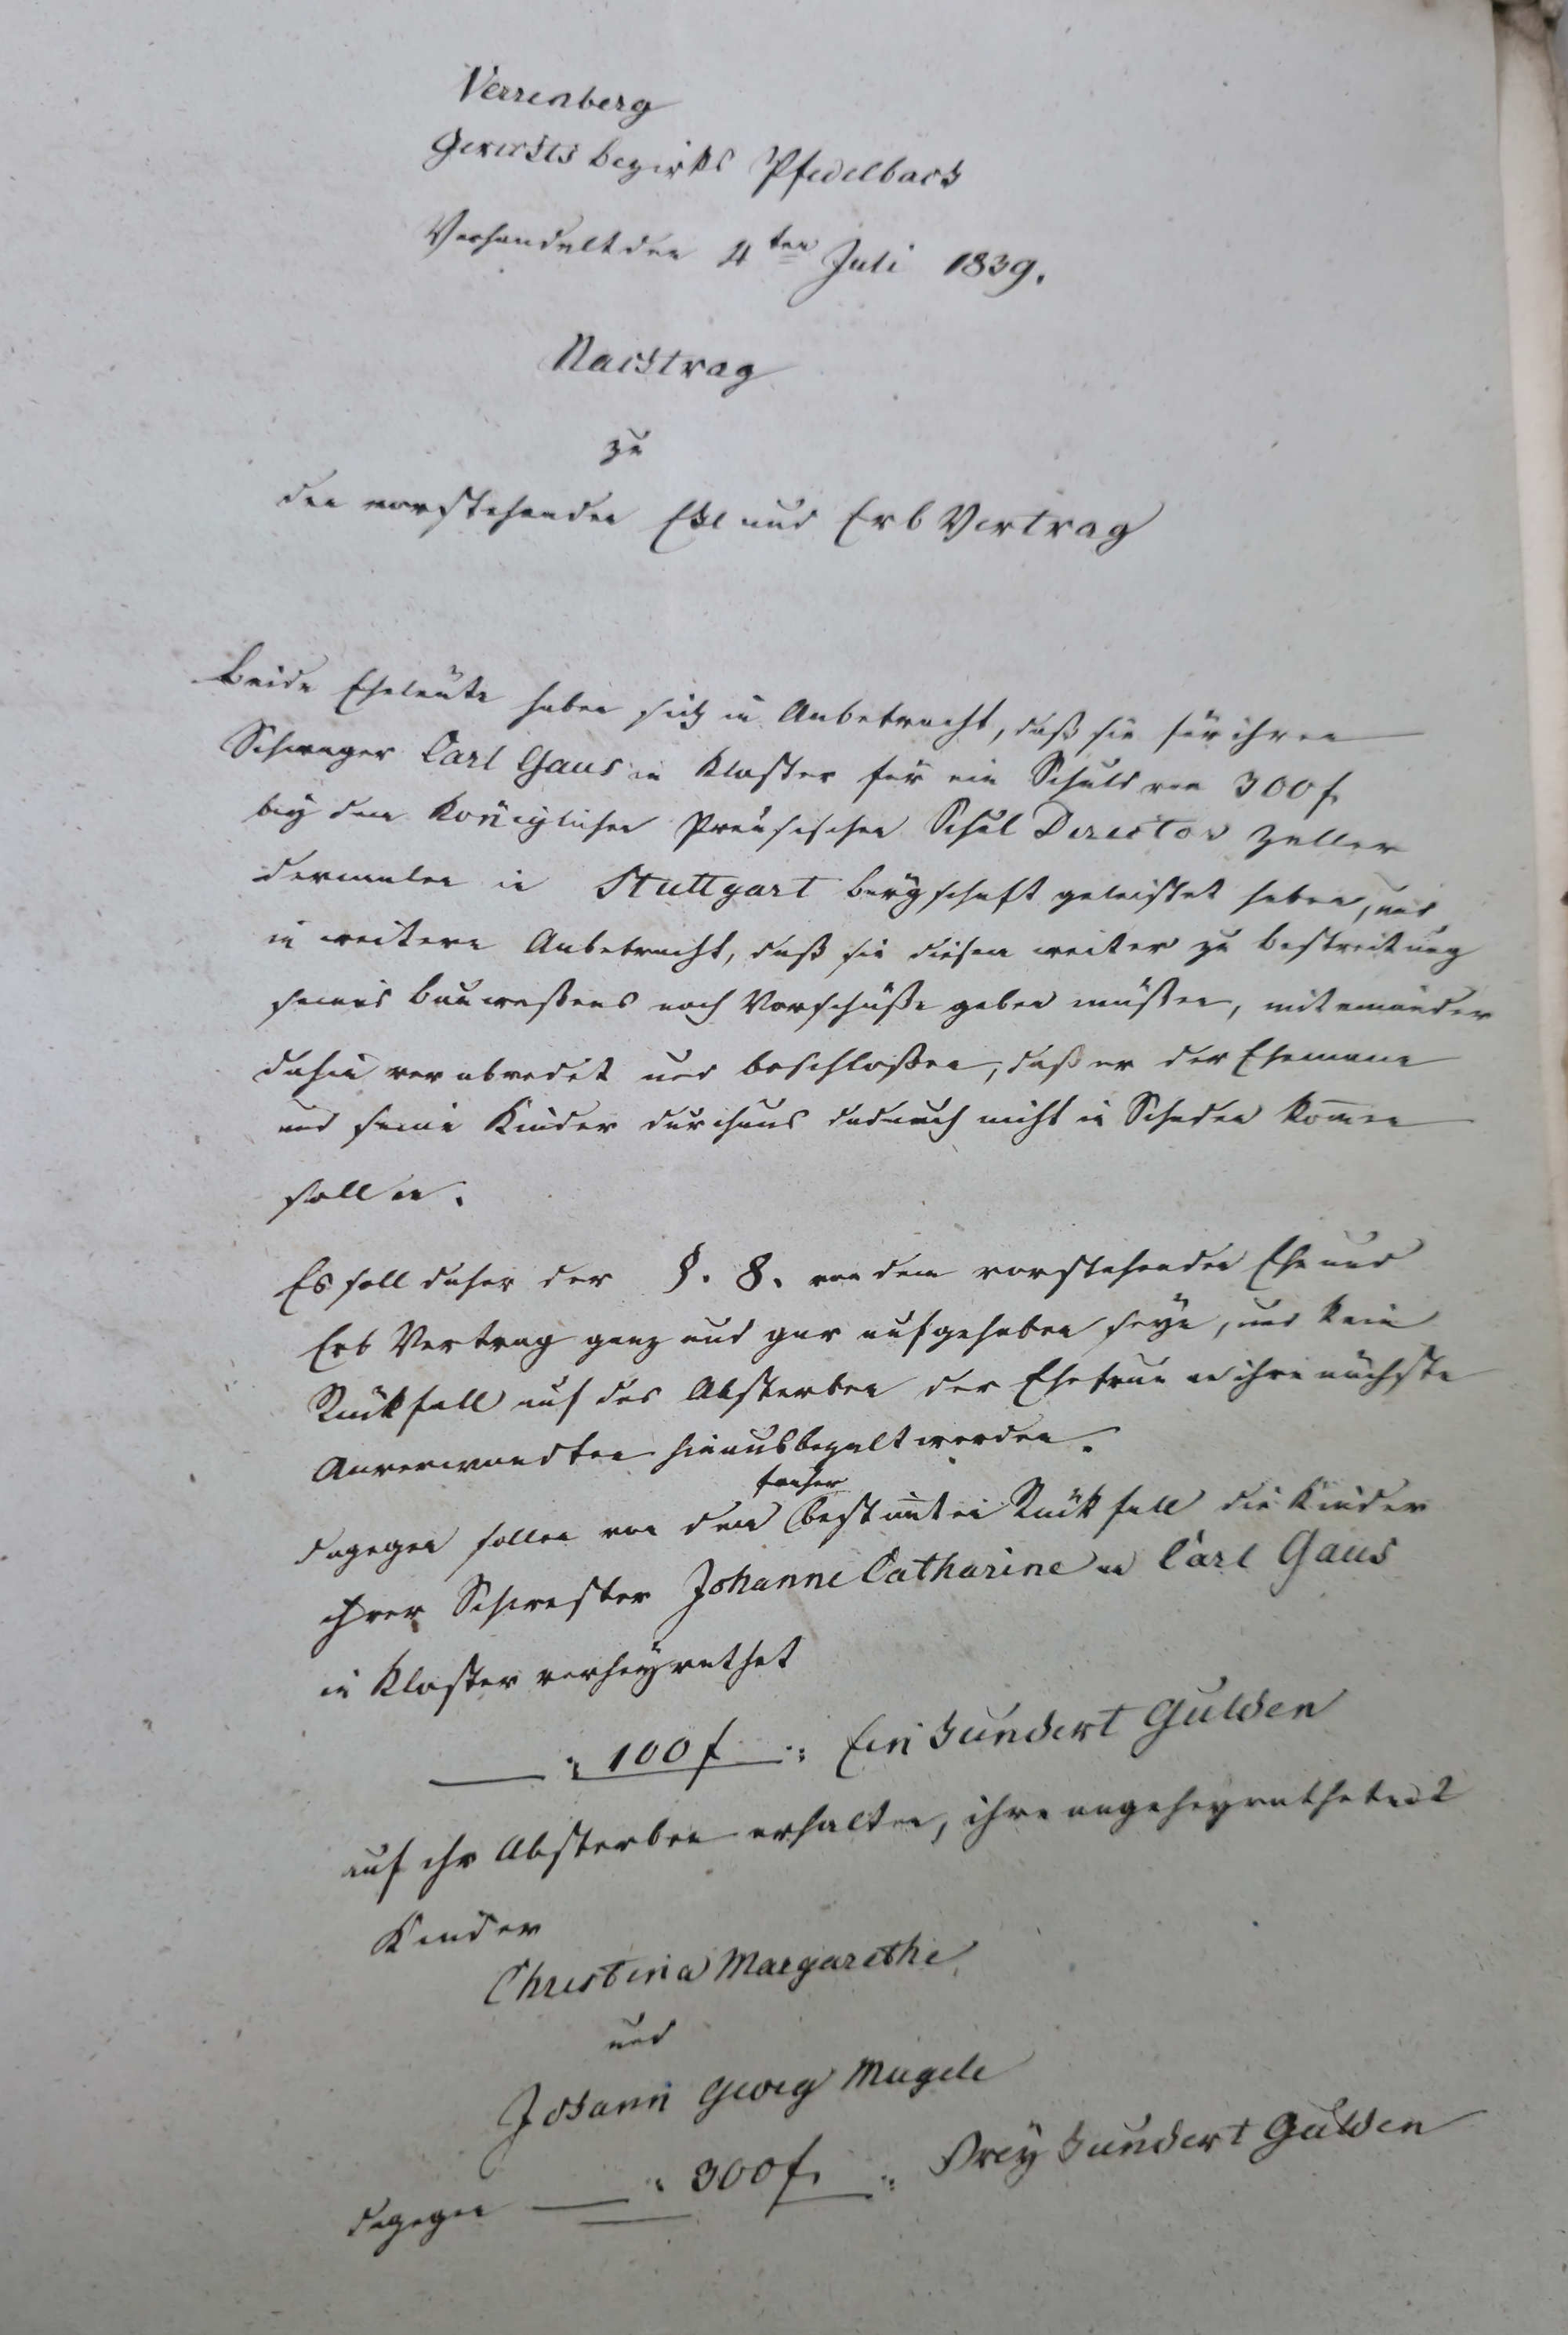 Verrenberg
Gerichts bezirks Pfedelbach
Verhandelt den 4ten Juli 1839.
Nachtrag
zu
den vorstehenden Ehe und Erb Vertrag
Beide Eheleute haben sich in Anbetracht, daß sie für ihren
Schwager Carl Gaus in Kloster für ein Schuld von 300 f.
bey dem Königlichen Preusischen Schul Director Zeller
dermalen in Stuttgart bürgschaft geleistet haben, und
in weitern Anbetracht, daß sie diesem weiter zu bestreitung
seines bauweßens noch Vorschüße geben müßen, miteinander
dahin verabredet und beschloßen, daß er der Ehemann
und seine Kinder durchaus dadurch nicht in Schaden kom̄en
sollen.
Es soll daher der §. 8. von dem vorstehenden Ehe und
Erb Vertrag ganz und gar aufgehoben seyn, und kein
Rückfall auf das Absterben der Ehefrau an ihre nächste
Anverwandten hinausbezalt werden.
dagegen sollen von dem früher bestim̄ten Rückfall die Kinder
ihrer Schwester Johanne Catharine an Carl Gaus
in Kloster verheyrathet
100 f Ein hundert Gulden
auf ihr Absterben erhalten, ihre angeheyratheten 2
Kinder
Christina Margarethe
und
Johann Georg Mugele
dagegen 300 f. Drey hundert Gulden